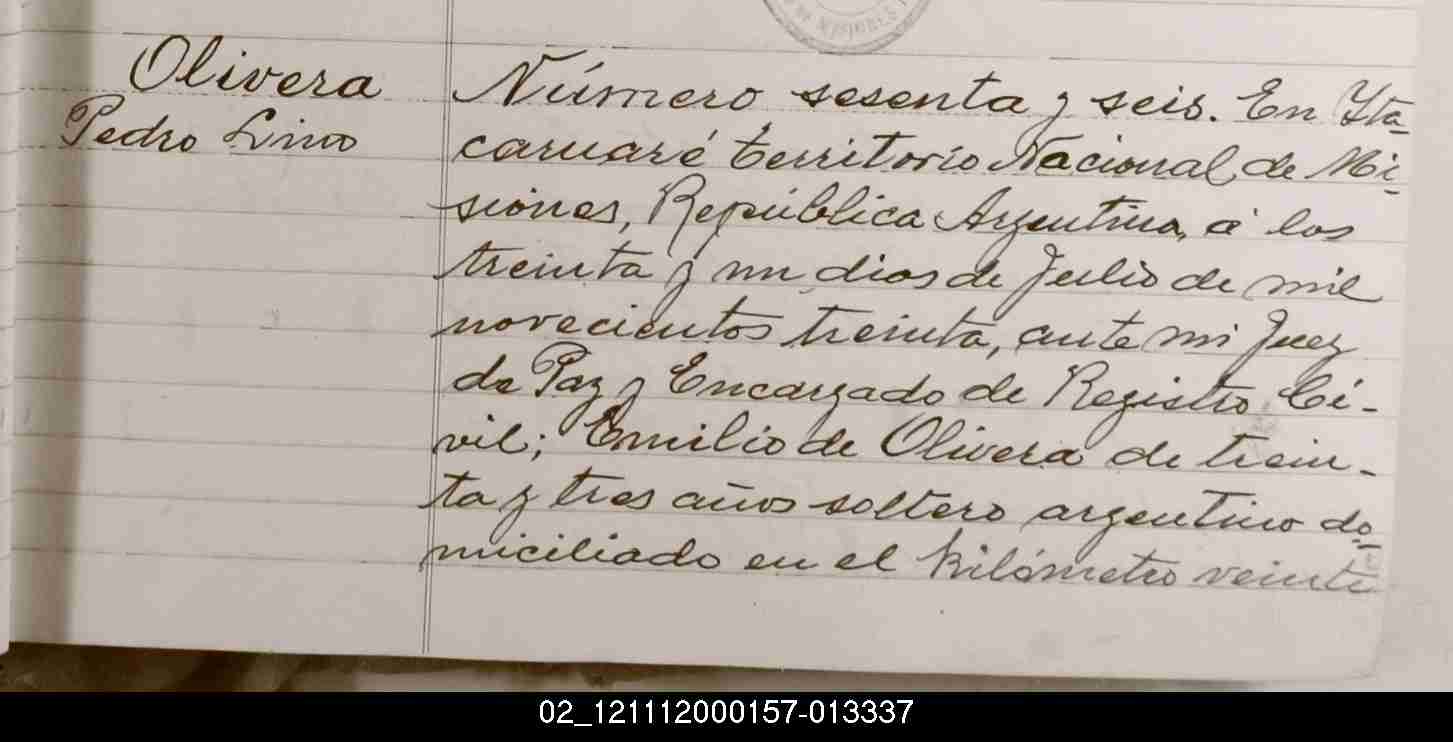 Olivera
Pedro Lino
Número sesenta y seis. En Ita-
caruaré territorio Nacional de Mi-
siones, República Argentina, á los
treinta y un dias de Julio de mil
novecientos treinta, ante mi Juez
de Paz y Encargado de Registro Ci-
vil; Emilio de Olivera de trein-
ta y tres años soltero argentino do-
miciliado en el kilómetro veinte
02_121112000157-013337